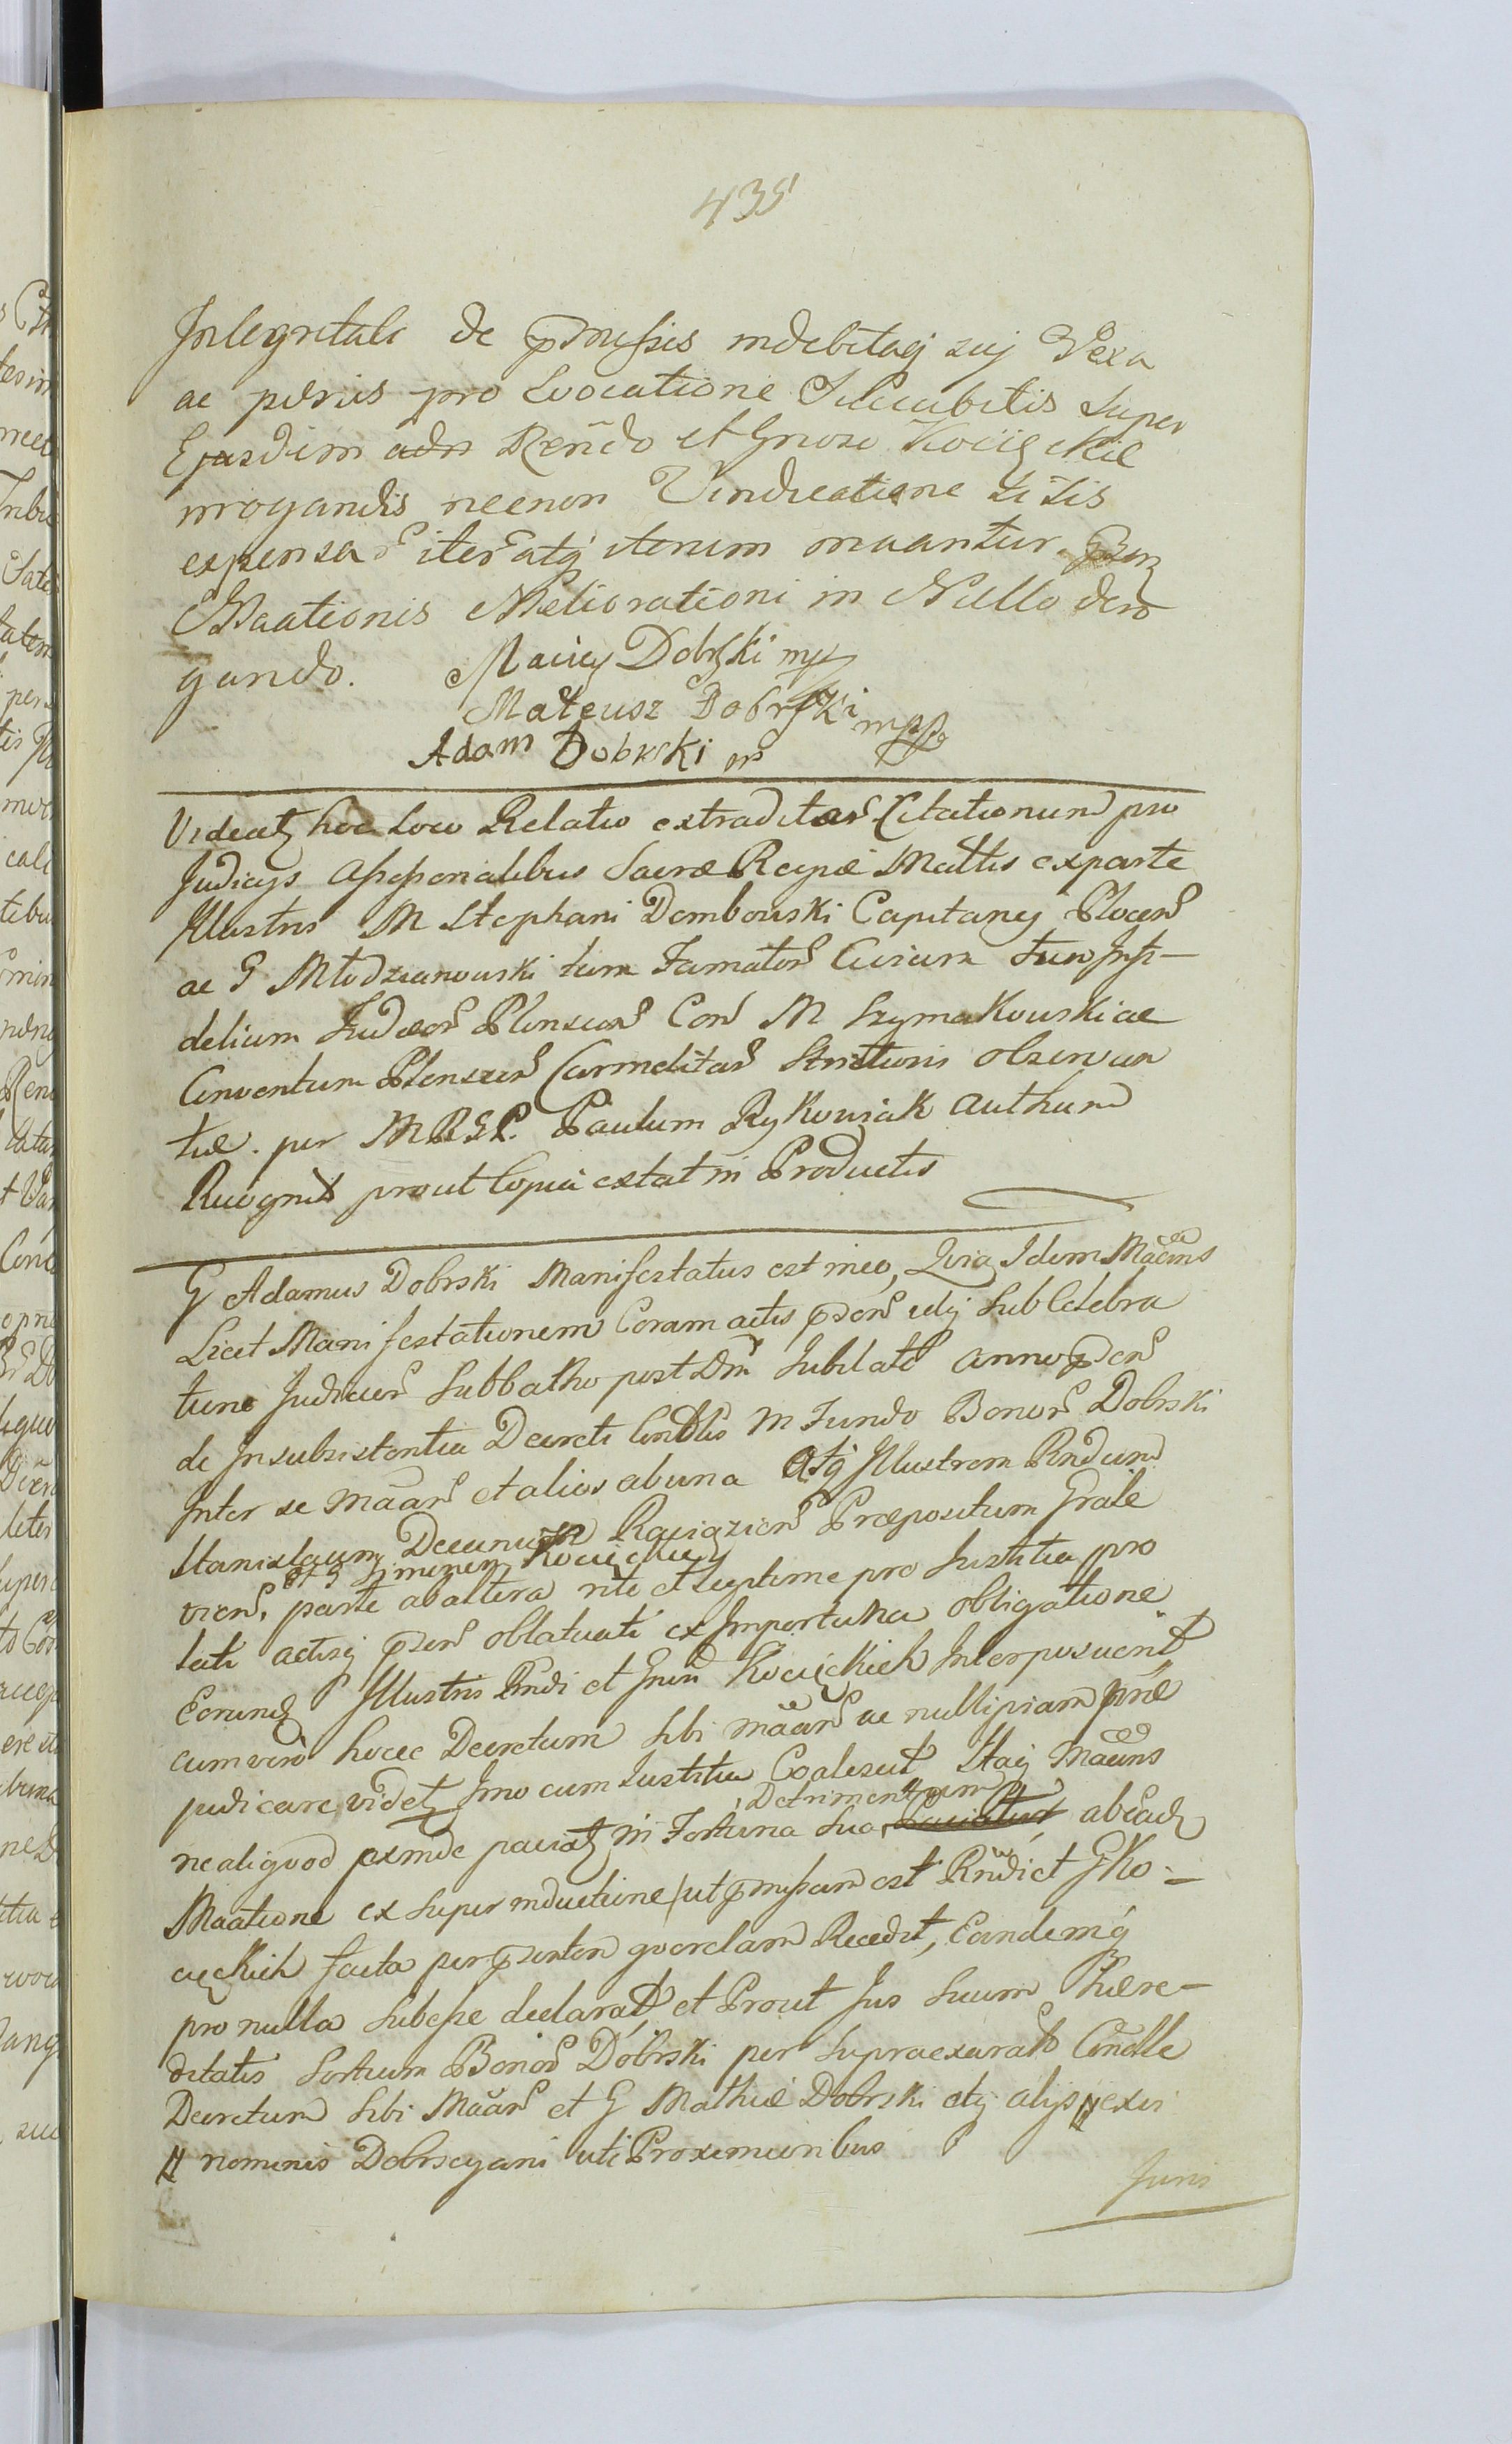 435
Integritate de pmissis indebitaq suj Vexa
ac pænis pro Evocatione Succubitis super
Ejusdem adn Rendo et Gnoso Kocięckie
irrogandis necnon Vindicatione Litis
expensar iter atq iterum maantur. Psenz
Maationis Meliorationi in Nullo dero
gando. Maciey Dobrski mp
Mateusz Dobrski mpp
Adam Dobrski
Videatz hoc Loco Relatio extraditar Citationum pro
Judicijs Assessorialibus Sacræ Regiæ Mattis exparte
Illustris M Stephani Dembowski Capitanei Plocen
ac G Młodzianowski tum Famator Civium tum Infi-
delium Judæor Plonscen Con M Szymakowski ac
Conventum Plonscen Carmelitar Strictioris observan
tiæ. per M R G P. Paulum Rykowiak authum
Recognit prout Copia extat in Productis
G Adamus Dobrski Manifestatus est in eo, Quia Idem Maans
Licet Manifestationem Coram actis psen relig sub Celebra
tione Judicior Sabbatho post Dm Jubilate anno psen
de Insubsistentia Decreti Condlis in Fundo Bonor Dobrski
Inter se Maan et alios ab una atq Illustrem Rndum
Stanislaum Decanum Raciązien Præpositum Grale
et G Simonem Kocięckie
vien, parte ab altera rite et legitime pro Justitia pro
lati actisq psen oblatuati ex Importuna obligatione
Eorund Illustris Rndi et Gnin Kocięckich Interposuerit
cum vero hocce Decretum sibi Maan ac nullipiam præ
judicare videtz Imo cum Justitia Coalescit Itaq Maans
Detrimentum
ne aliquod exinde paciatz in Fortuna sua, Paciatur ab ead
Maatione ex superinductione ut pmissum est Rndi et G Ko-
cięckich facta per psentem querelam Recedit, Eandemq
pro nulla subesse declarat, et Prout Jus suum Hære-
ditatis Sortium Bonor Dobrski per supraexarat Condle
Decretum sibi Maan et G Mathiæ Dobrski etq alijs # exis
# nominis Dobrscyani uti Proximioribus
Juris